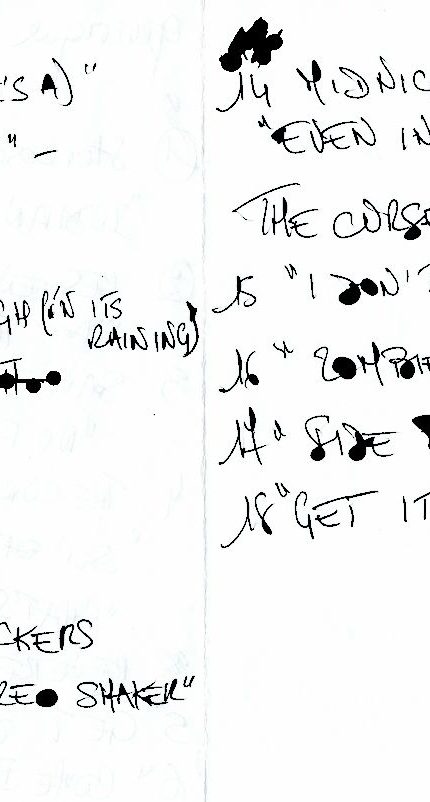 'S A)"
" –
GH (IN ITS
RAINING)
CKERS
SHAKER"
14 MIDNIC
"EVEN IN
THE CURSE
15 "I DON'T
16 " ZOMBI
17 " SIDE
18 "GET IT